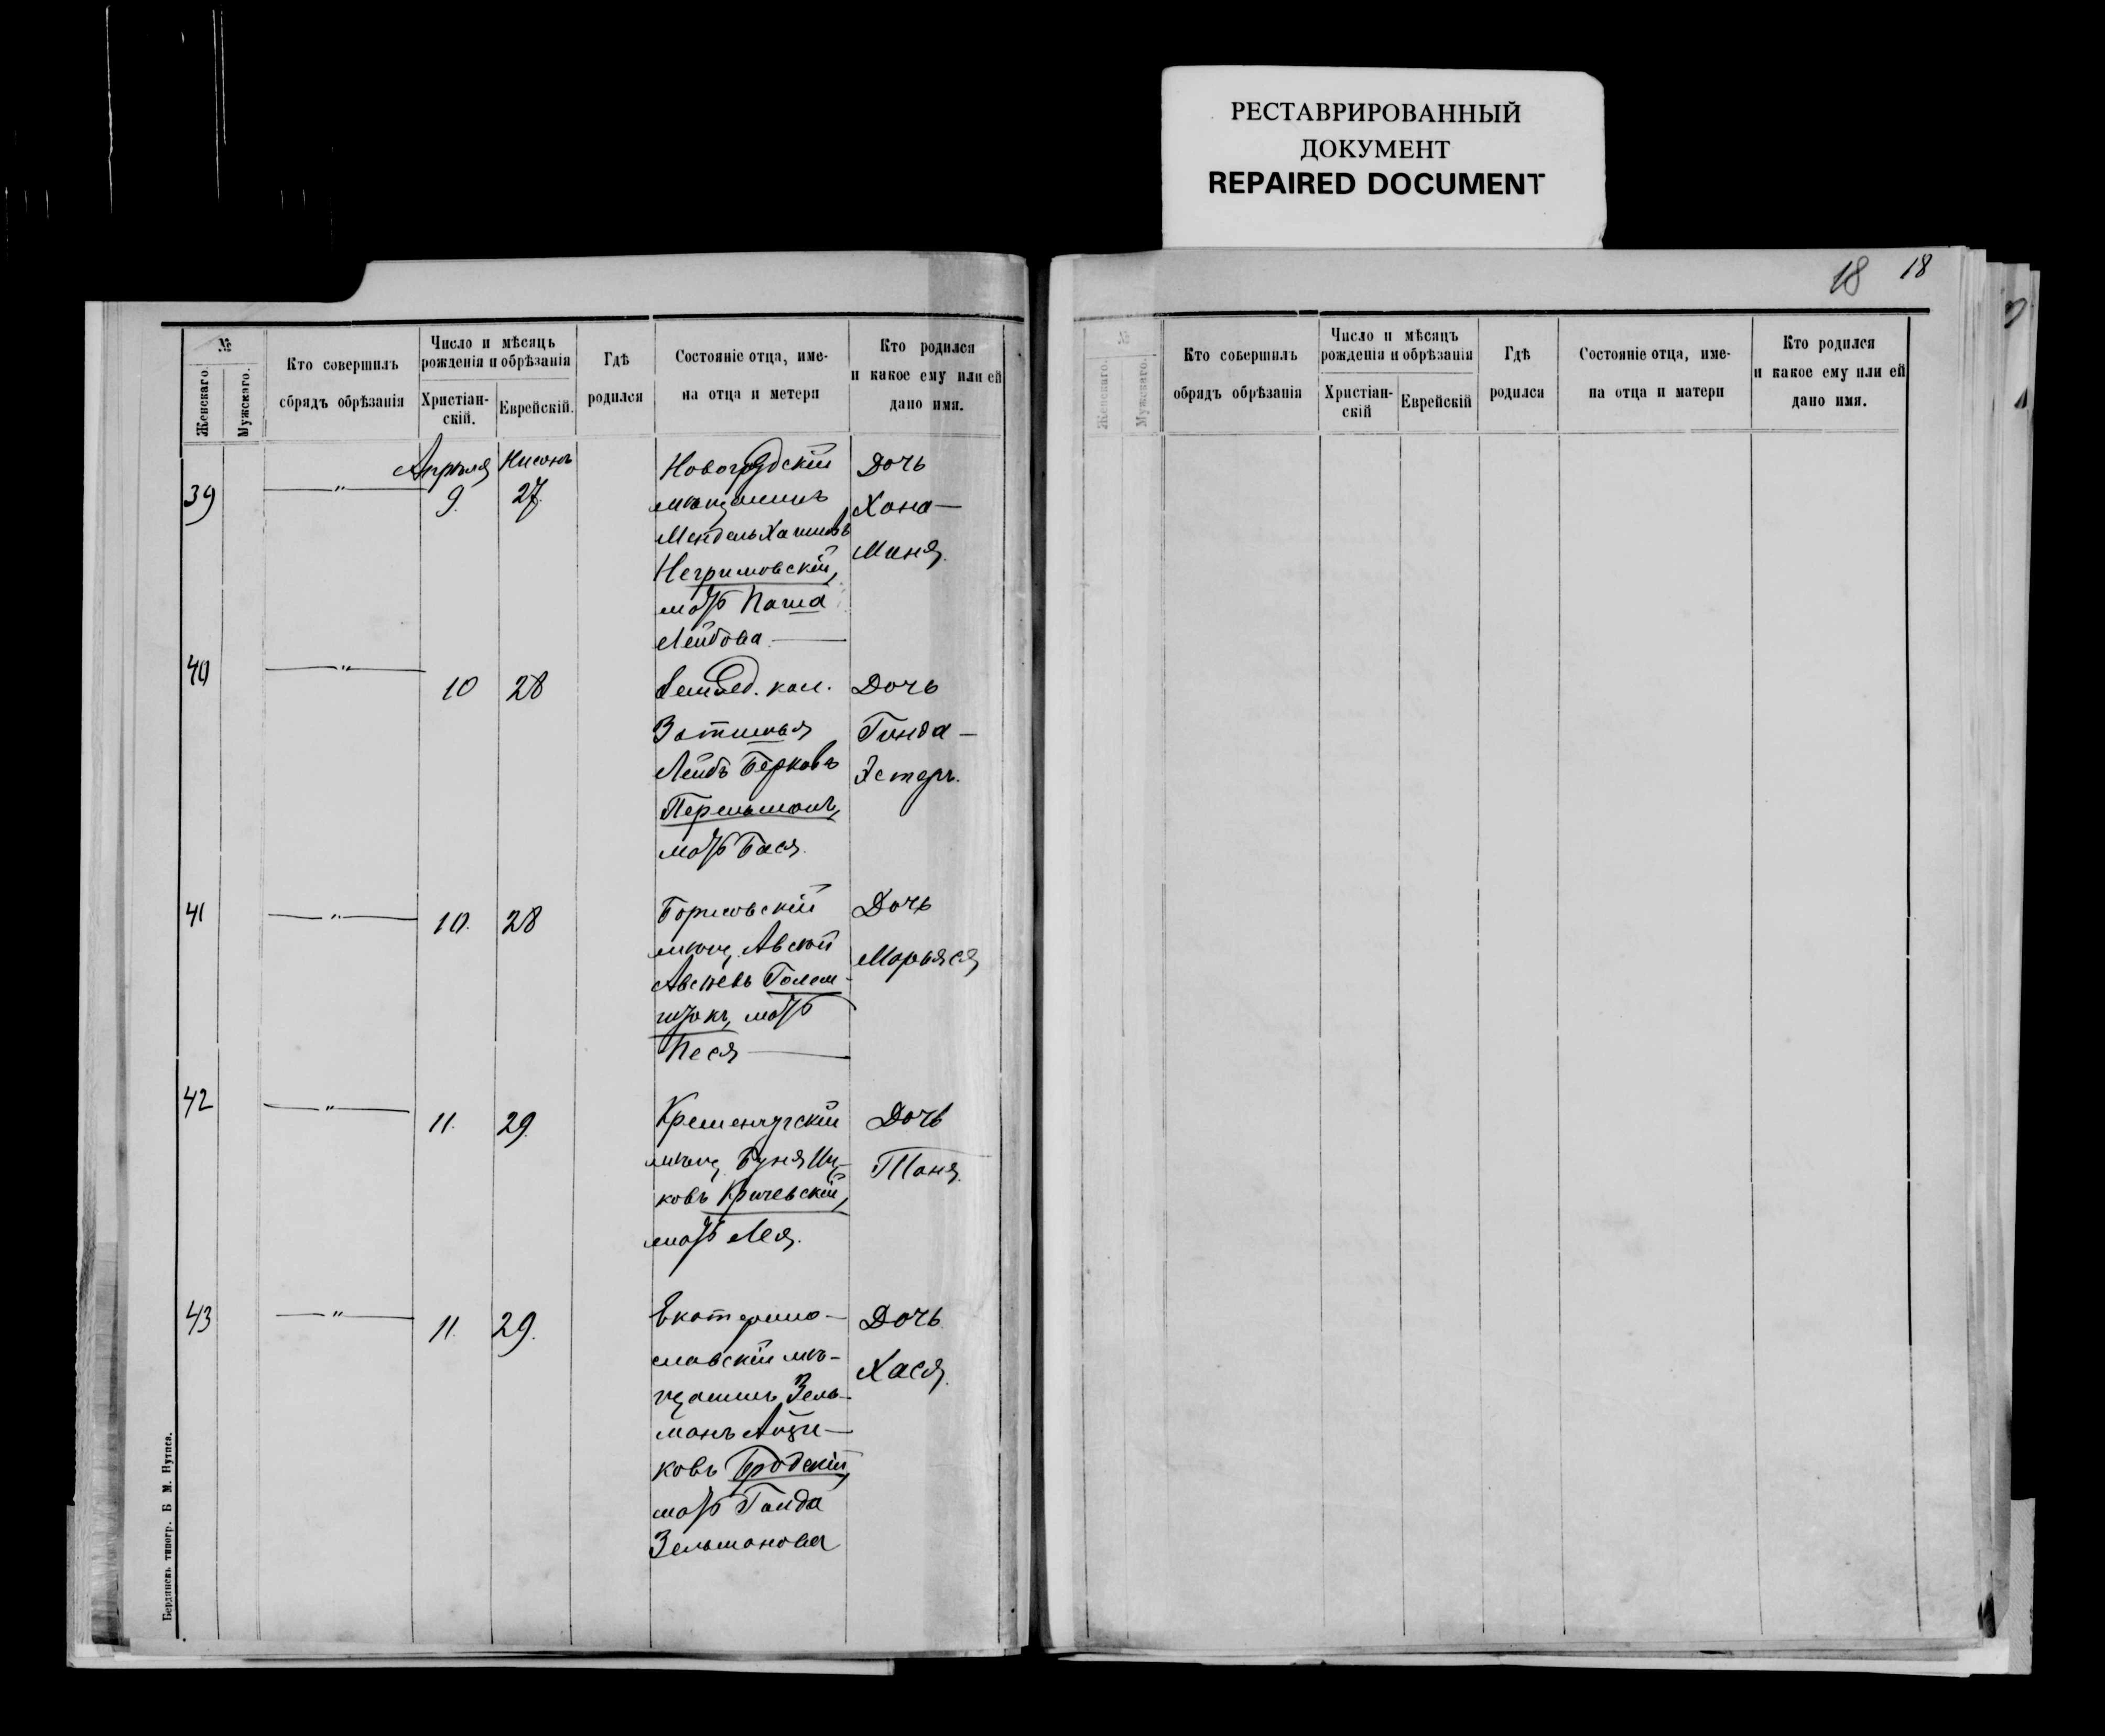 РЕСТАВРИРОВАННЫЙ
ДОКУМЕНТ
REPAIRED DOCUMENT
18 18
№
Женскаго.
Мужскаго.
Кто совершилъ
обрядъ обрѣзанія
Число и мѣсяць
рожденія и обрѣзанія
Христіан-
скій.
Еврейскій.
Гдѣ
родился
Состояніе отца, име-
на отца и метери
Кто родился
и какое ему или ей
дано имя.
39
—"—
Апрѣля
9.
Нисонъ
27.
Новогрудскій
мѣщанинъ
Мендель Хаимовъ
Негримовскій,
мать Паша
Лейбова —
Дочь
Хана—
Маня.
40
—"—
10
28
Земled. кол.
Затишья
Лейбъ Берковъ
Перельманъ,
мать Бася.
Дочь
Гинда—
Эстеръ.
41
—"—
10.
28
Борисовскій
мѣщ. Авсѣй
Авсѣевъ Голом-
мать
Песя —
Дочь
Марьяся
42
—"—
11.
29.
Кременчугскій
мѣщ.
ковъ Кричевскій,
мать Лея.
Дочь
Таня.
43
—"—
11.
29.
Екатерино-
славскій мѣ-
щанинъ Зель-
манъ Айзи-
ковъ Бродскій,
мать Гинда
Зельманова
Дочь
Хася.
Бердянскъ типогр. Б М.
№
Женскаго.
Мужскаго.
Кто совершилъ
обрядъ обрѣзанія
Число и мѣсяцъ
рожденія и обрѣзанія
Христіан-
скій
Еврейскій
Гдѣ
родился
Состояніе отца, име-
на отца и матери
Кто родился
и какое ему или ей
дано имя.